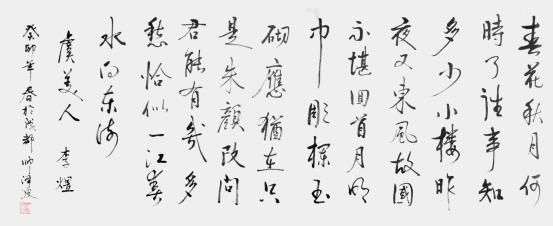 春花秋月何
時了往事知
多少小樓昨
夜又東風故國
不堪回首月明
中彫欄玉
砌應猶在只
是朱顏改問
君能有幾多
愁恰似一江春
水向東流
虞美人 李煜
癸卯年春於成都